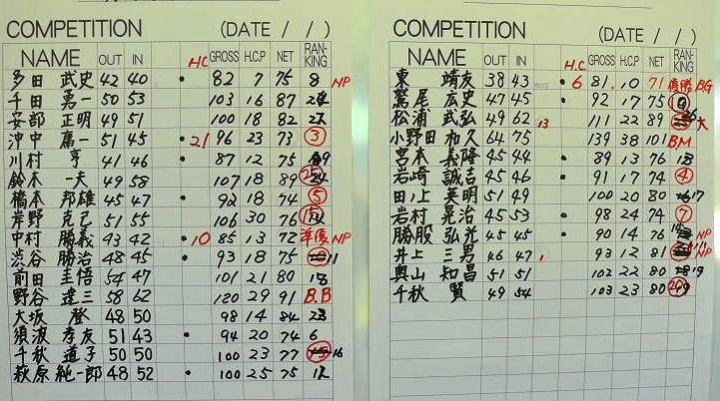 COMPETITION (DATE / / )
NAME OUT IN H.C GROSS H.C.P NET RAN-KING
多田 武史 42 40 • 82 7 75 8 NP
千田 勇一 50 53 103 16 87
安部 正明 49 51 100 18 82
沖中 薫一 51 45 • 21 96 23 73 3
川村 亨 41 46 • 87 12 75
鈴木 一夫 49 58 107 18 89
橋本 邦雄 45 47 • 92 18 74 5
岸野 克己 51 55 106 30 76
中村 勝義 43 42 • 10 85 13 72 準優 NP
渋谷 勝治 48 45 • 93 18 75 11
前田 圭悟 54 47 101 21 80 18
野谷 達三 58 62 120 29 91 B.B
大坂 登 48 50 98 14 84 23
須波 孝友 51 43 • 94 20 74 6
千秋 道子 50 50 100 23 77 16
萩原 純一郎 48 52 • 100 25 75 12
COMPETITION (DATE / / )
NAME OUT IN H.C GROSS H.C.P NET RAN-KING
東 靖友 38 43 • 6 81 10 71 優勝 B.G
鷲尾 広史 47 45 • 92 17 75
松浦 武弘 49 62 13 111 22 89 大
小野田 和久 64 75 139 38 101 B.M
宮本 義隆 45 44 • 89 13 76
岩崎 誠吉 45 46 • 91 17 74 4
田上 英明 51 49 100 20 80 17
岩村 晃治 45 53 • 98 24 74 7
勝股 弘光 45 45 • 90 14 76 NP
井上 三男 46 47 93 12 81 NP
奥山 知昌 51 51 102 22 80 19
千秋 賢 49 54 103 23 80